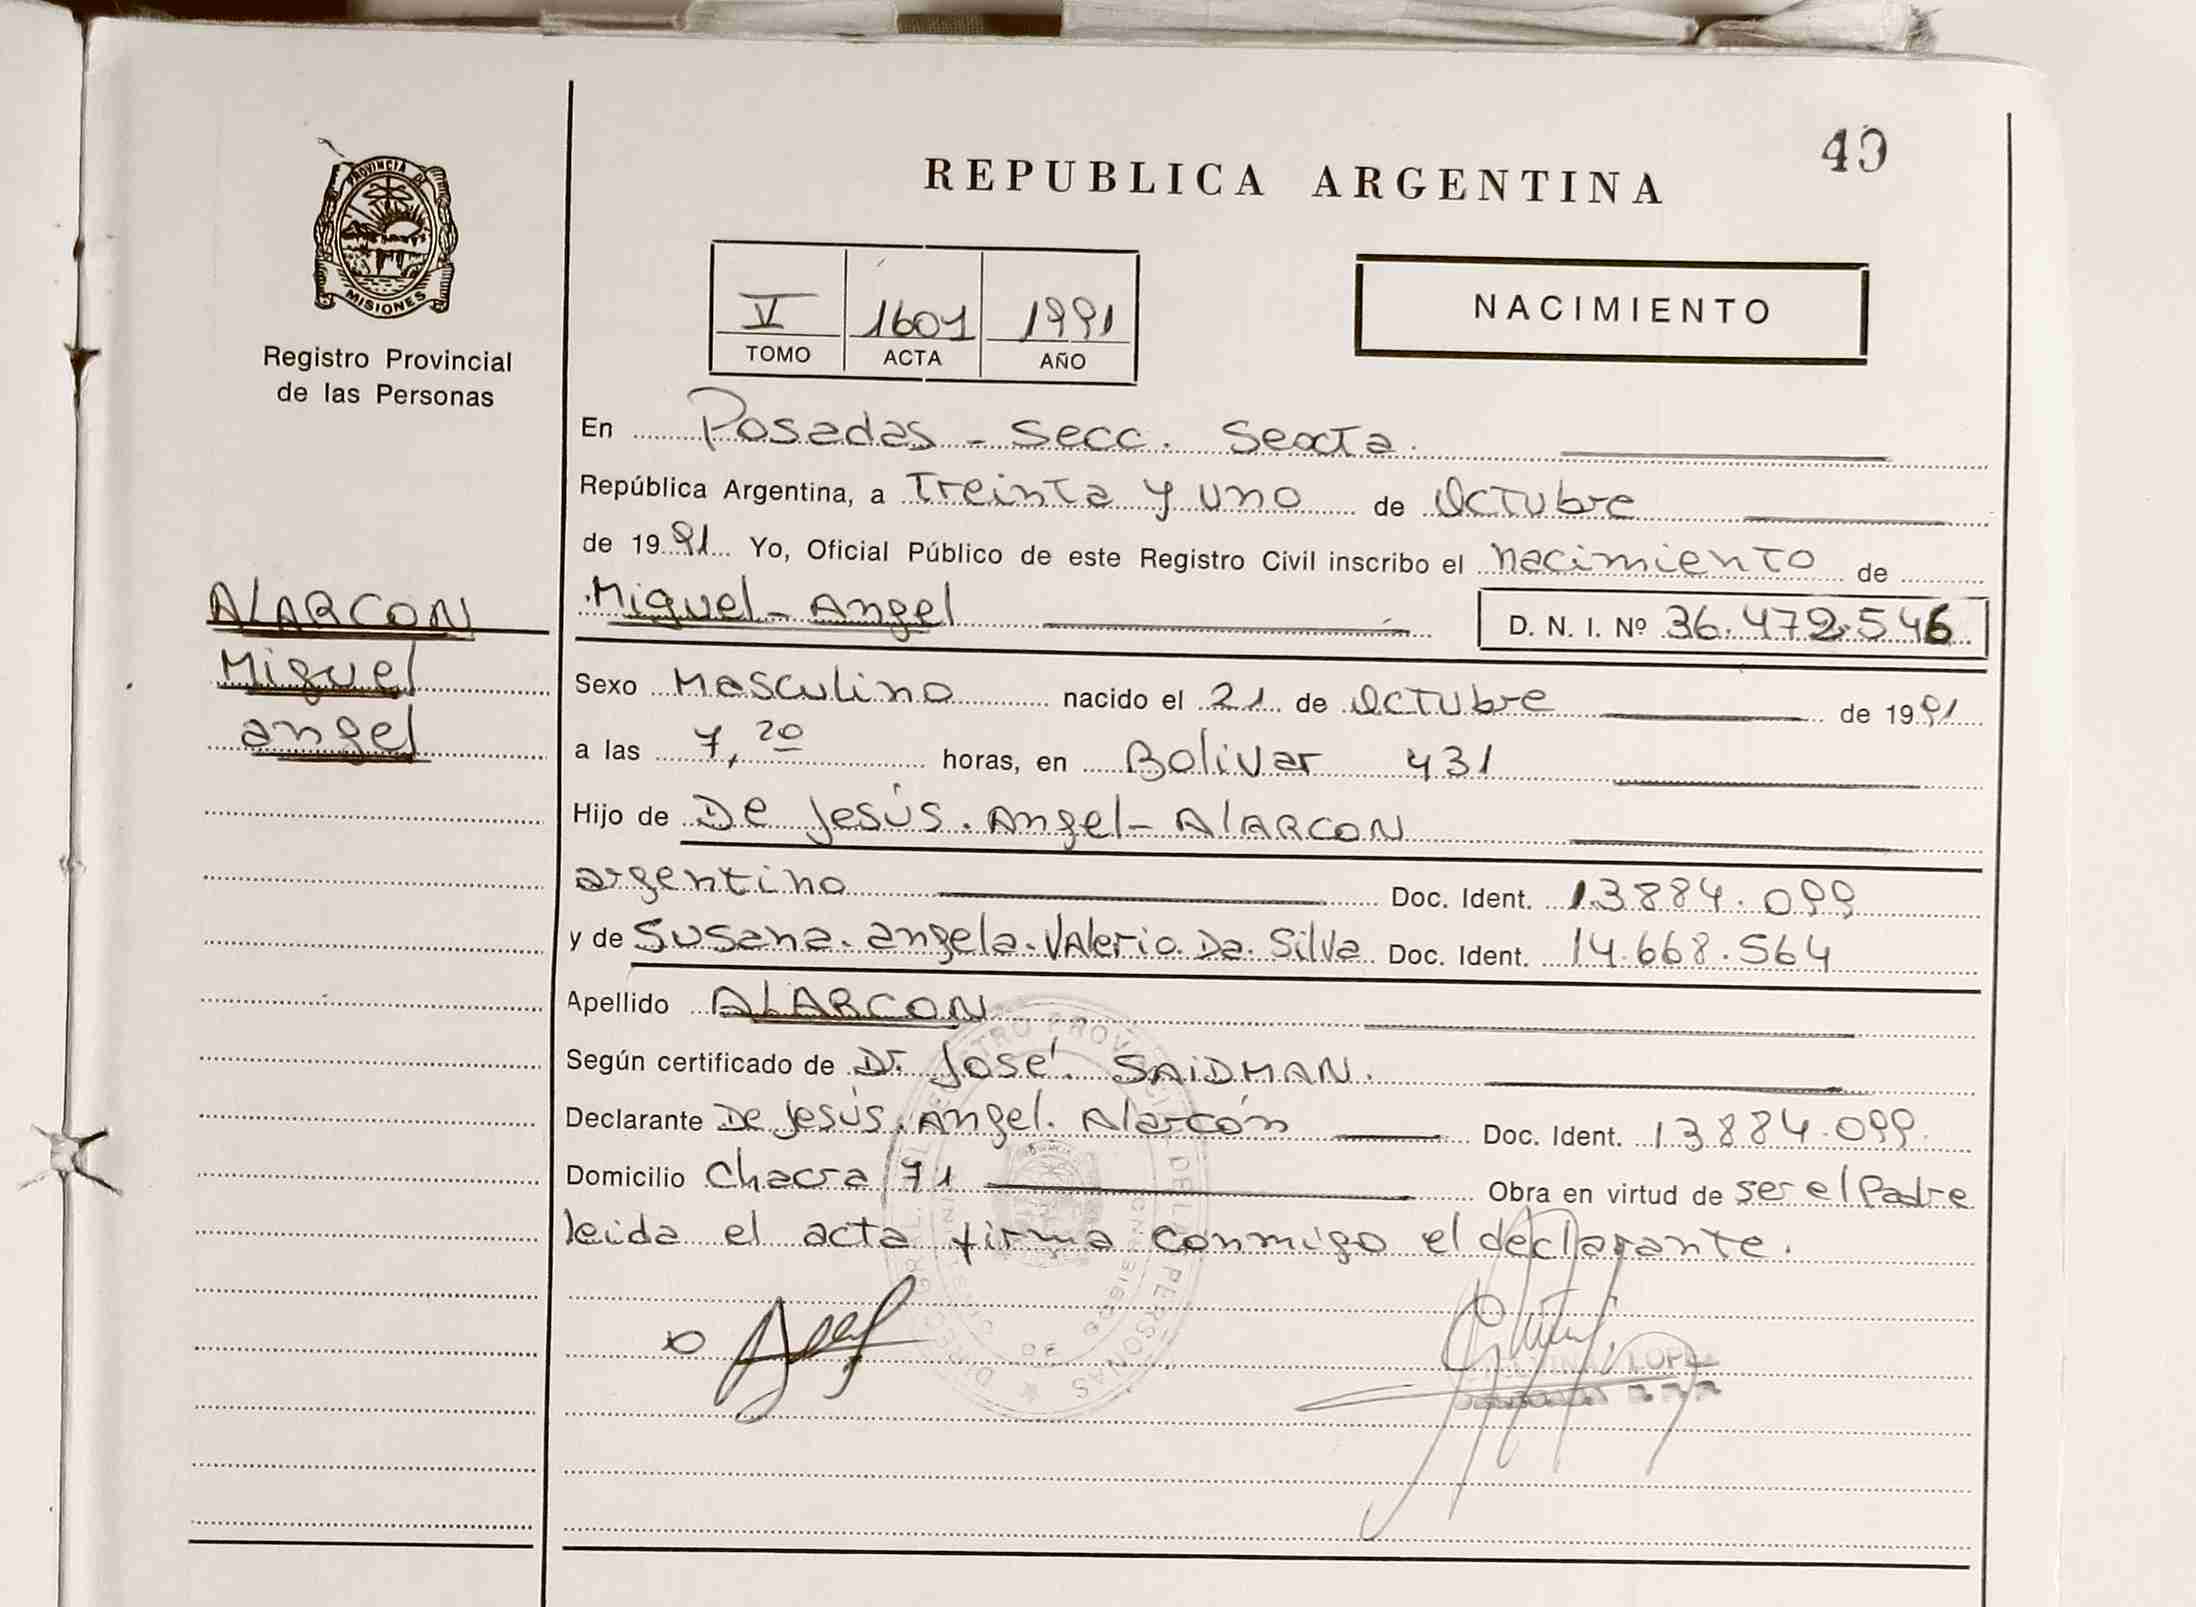 49
REPUBLICA ARGENTINA
PROVINCIA DE
MISIONES
Registro Provincial
de las Personas
V 1601 1991
TOMO ACTA AÑO
NACIMIENTO
En Posadas - Secc. Sexta.
República Argentina, a Treinta y uno de Octubre
de 1991 Yo, Oficial Público de este Registro Civil inscribo el nacimiento de
ALARCON
Miguel
angel
Miguel - Angel D. N. I. Nº 36.472.546
Sexo Masculino nacido el 21 de Octubre de 1991
a las 7,20 horas, en Bolivar 431
Hijo de De Jesús. Angel - AlARCON
argentino Doc. Ident. 13884.099
y de Susana. angela. VAlerio. Da. Silva Doc. Ident. 14.668.564
Apellido ALARCON
Según certificado de Dr. José. SAiDMAN.
Declarante De Jesús. Angel. Alarcón Doc. Ident. 13884.099.
Domicilio Chacra 71 Obra en virtud de ser el Padre
leida el acta firma conmigo el declarante.